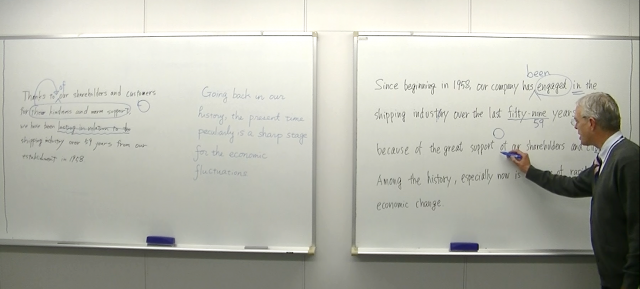 Thanks to our shareholders and customers
for their kindness and warm support
we have been
shipping industry over 59 years from our
establishment in 1958
Going back in our
history, the present time
peculiarly is a sharp stage
for the economic
fluctuations
been
Since beginning in 1958, our company has engaged in the
shipping industry over the last fifty-nine years
59
because of the great support of our shareholders and
Among the history, especially now is
economic change